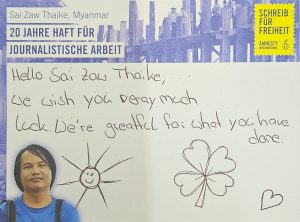 Sai Zaw Thaike, Myanmar
20 JAHRE HAFT FÜR
JOURNALISTISCHE ARBEIT
SCHREIB
FÜR
FREIHEIT
AMNESTY
INTERNATIONAL
Hello Sai Zaw Thaike,
we wish you veray much
luck. We're greatful for what you have
done.